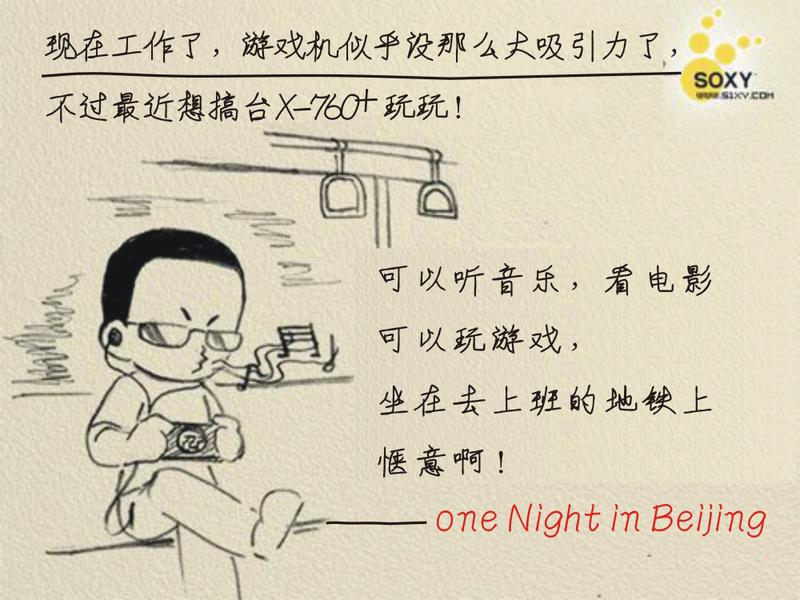 现在工作了，游戏机似乎没那么大吸引力了，
不过最近想搞台X-760+玩玩！
SOXY
WWW.S1XY.COM
可以听音乐，看电影
可以玩游戏，
坐在去上班的地铁上
惬意啊！
760
one Night in Beijing